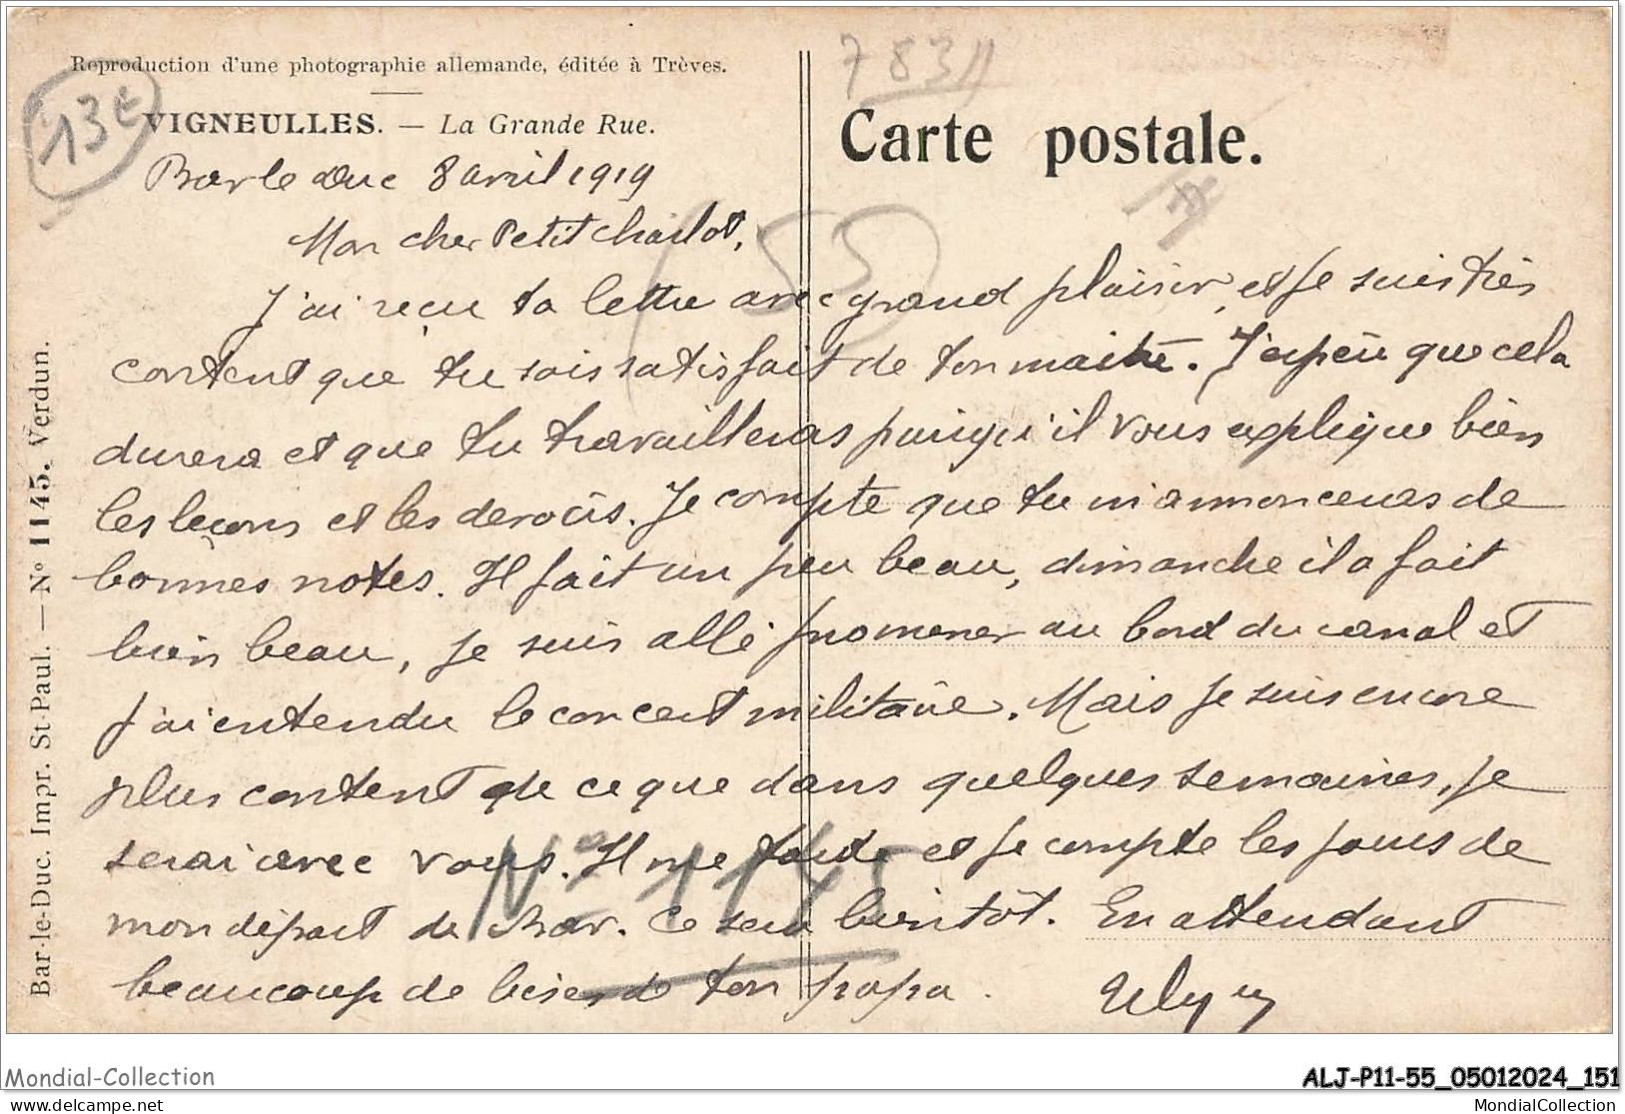 Reproduction d'une photographie allemande, éditée à Trèves.
VIGNEULLES. — La Grande Rue.
Carte postale.
13€
7831
55
Bar le Duc 8 avril 1919
Mon cher Petit Charlot,
J'ai reçu ta lettre avec grand plaisir, et je suis très
content que tu sois satisfait de ton maître. J'espère que cela
durera et que tu travailleras puisqu'il vous explique bien
les leçons et les devoirs. Je compte que tu m'annonceras de
bonnes notes. Il fait un peu beau, dimanche il a fait
bien beau, je suis allé promener au bord du canal et
j'ai entendu le concert militaire. Mais je suis encore
plus content de ce que dans quelques semaines, je
serai avec vous. Il me tarde et je compte les jours de
mon départ de Bar. Ce sera bientôt. En attendant
beaucoup de bises de ton papa.
N° 1145
Bar-le-Duc. Impr. St-Paul. — N° 1145. Verdun.
Mondial-Collection
ALJ-P11-55_05012024_151
www.delcampe.net
MondialCollection